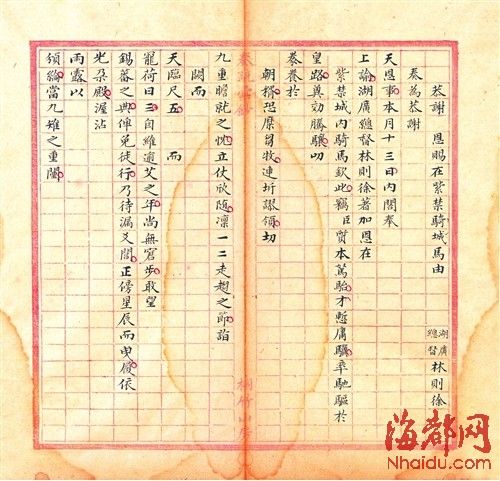 恭謝 恩賜在紫禁騎城馬由
湖廣總督林則徐
奏為恭謝
天恩事本月十三日內閣奉
上諭湖廣總督林則徐著加恩在
紫禁城內騎馬欽此竊臣質本駑駘才慙庸驥率馳驅於
皇路莫効騰驤叨
豢養於
朝
恐縻芻牧連圻謬領切
九重瞻就之忱立仗欣隨凜一二走趨之節詣
闕而
天臨尺五 而
寵荷日三自維逾艾之年尚無窘步敢望
錫蕃之典俾免徒行乃待漏
正傍星辰而曳履依
光朵殿渥沾
雨露以
領綸當九雉之重闉
海都网
Nhaidu.com